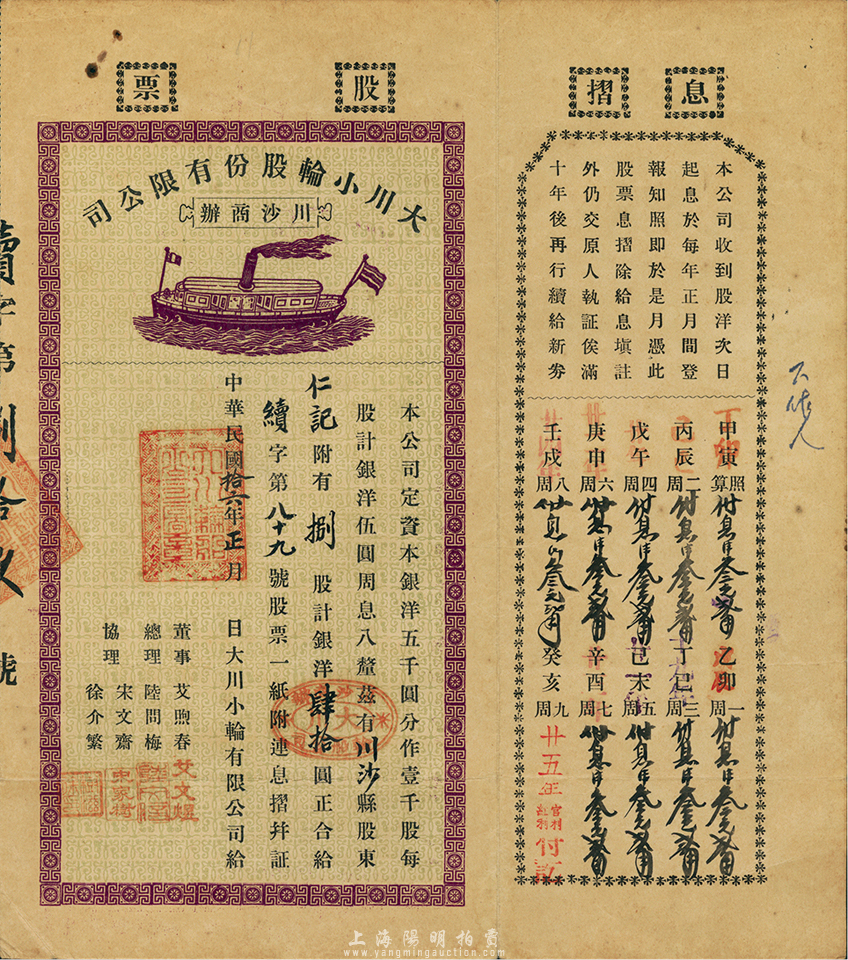 息摺
本公司收到股洋次日
起息於每年正月間登
報知照即於是月憑此
股票息摺除給息填註
外仍交原人執証俟滿
十年後再行續給新券
甲寅照算
乙卯一周
丙辰二周
丁巳三周
戊午四周
己未五周
庚申六周
辛酉七周
壬戌八周
癸亥九周
廿五年
付訖
股票
大川小輪股份有限公司
川沙商辦
本公司定資本銀洋五千圓分作壹千股每
股計銀洋伍圓周息八釐茲有川沙縣股東
仁記附有捌股計銀洋肆拾圓正合給
續字第八十九號股票一紙附連息摺并証
中華民國拾六年正月 日大川小輪有限公司給
董事 艾煦春
總理 陸問梅
宋文齋
協理
徐介繁
續字第捌拾玖號
上海陽明拍賣
www.yangmingauction.com